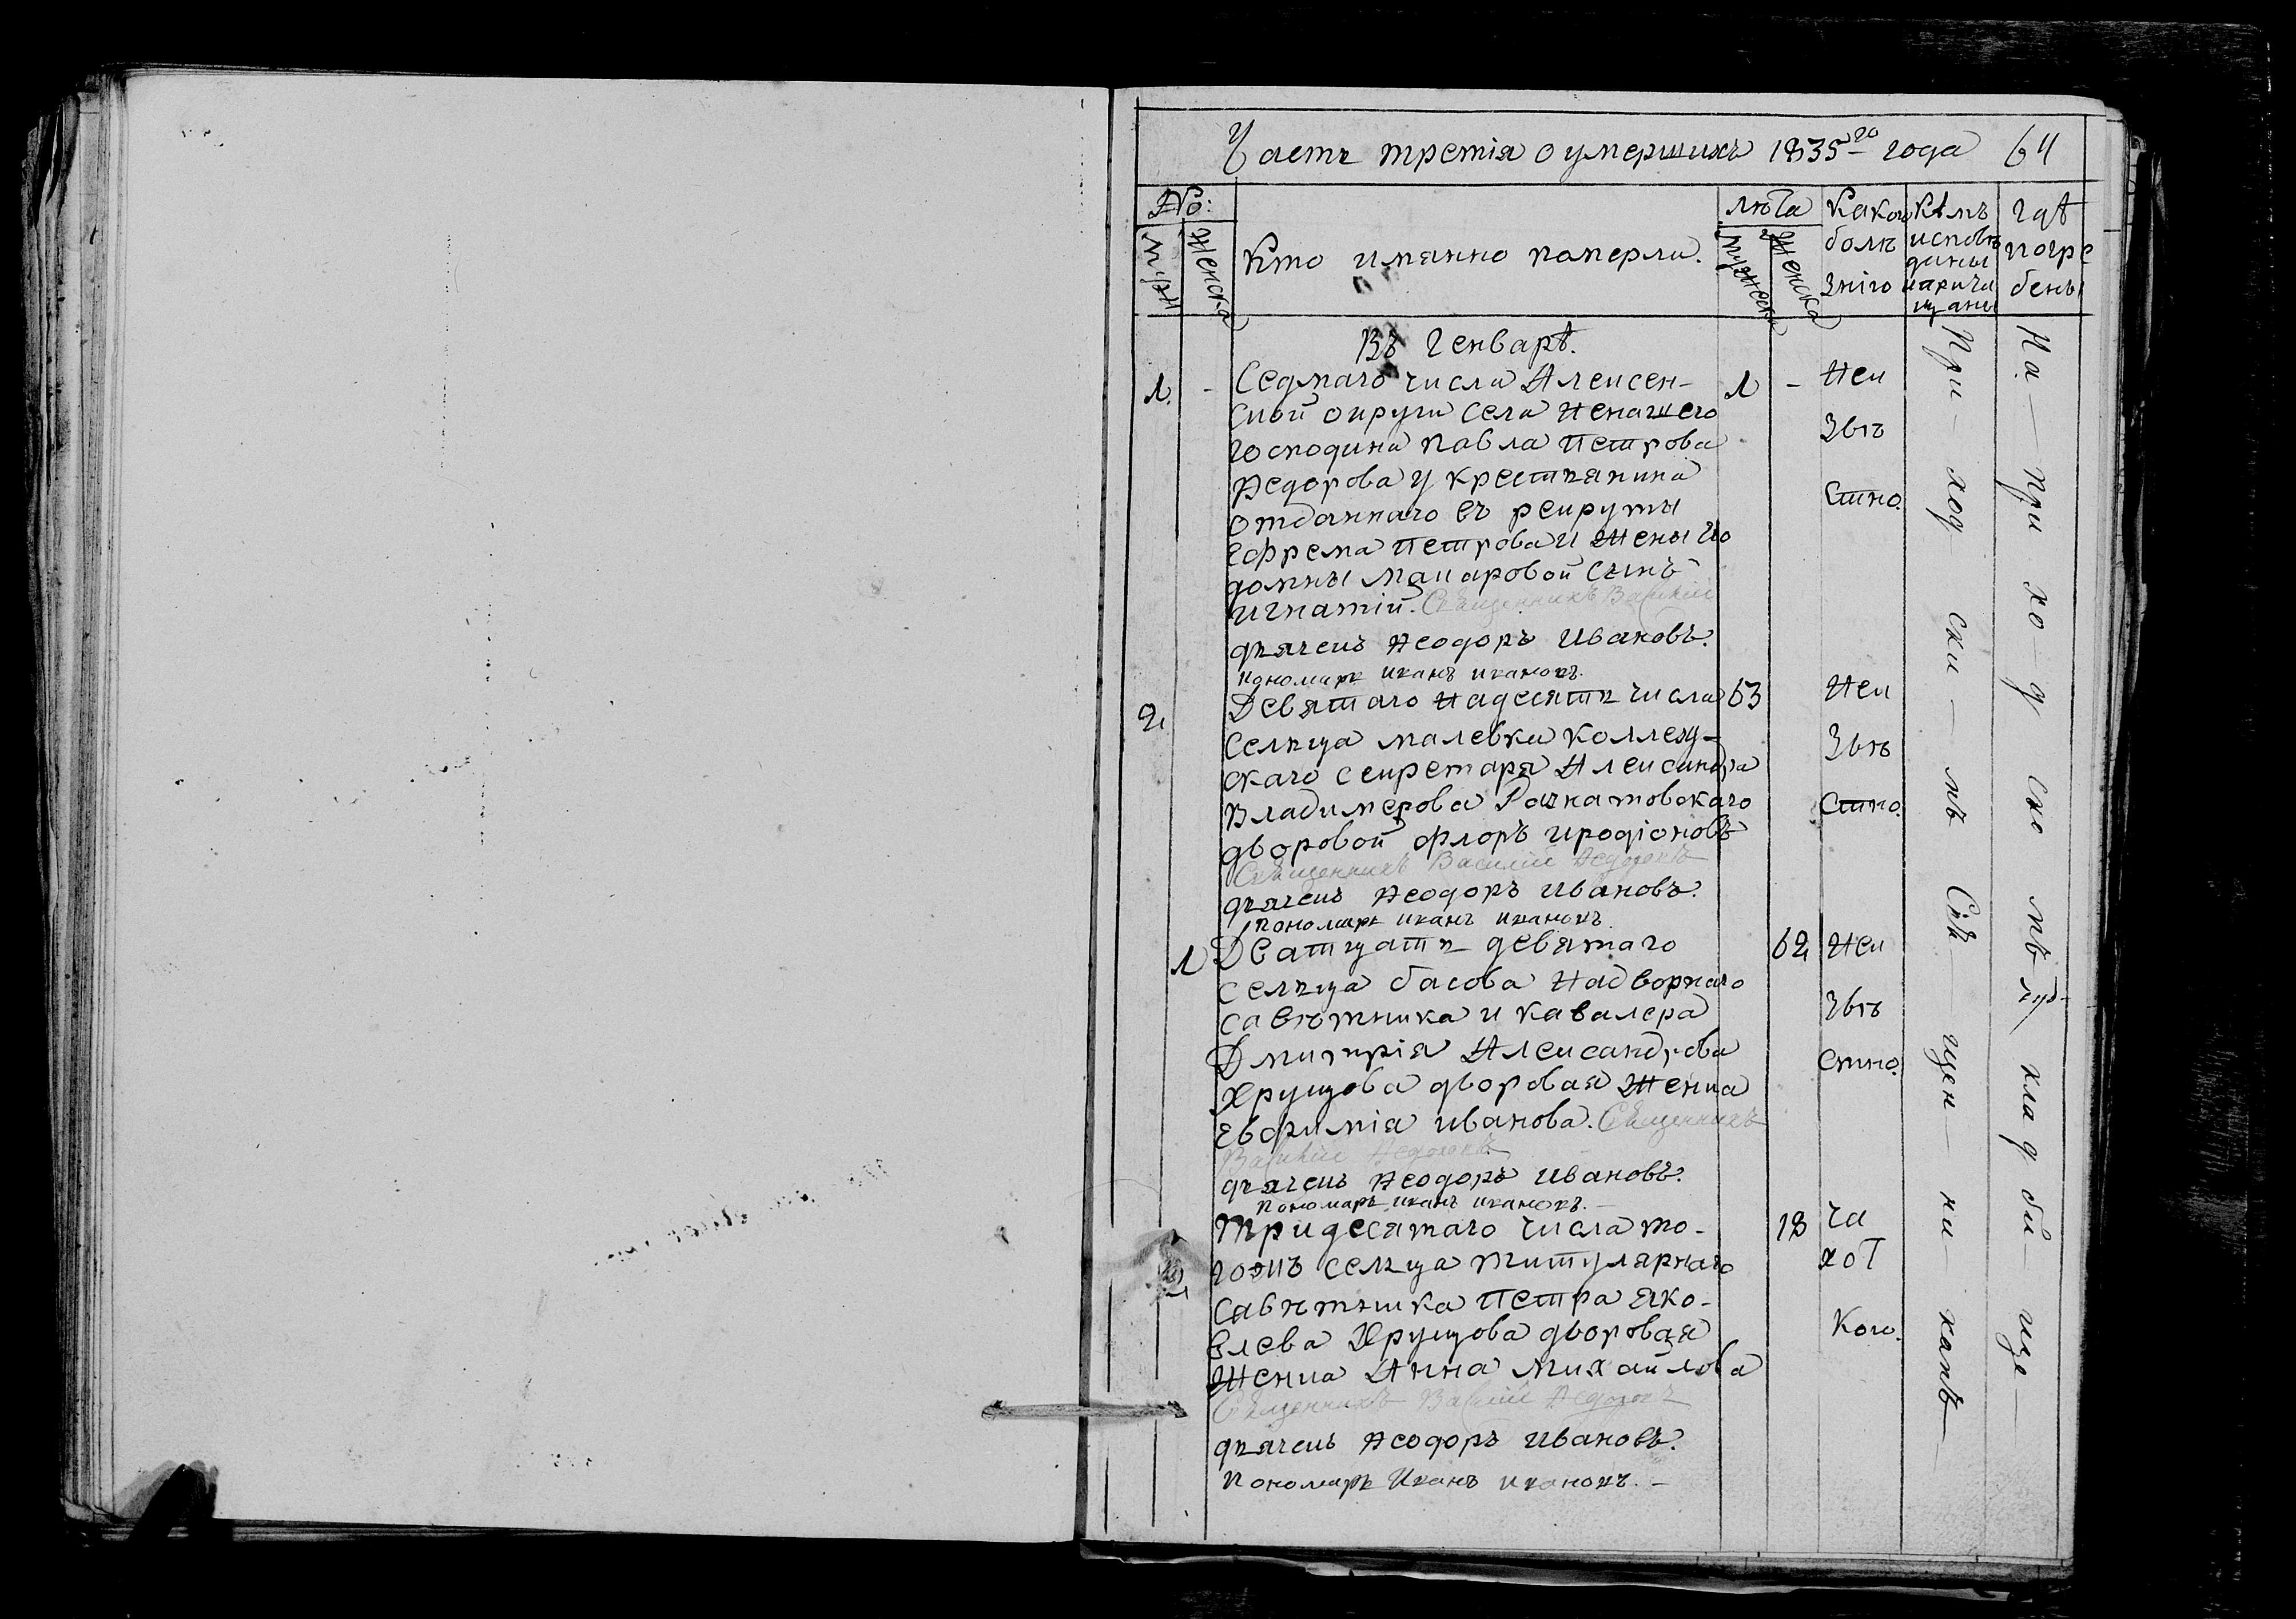 Часть третія о умершихъ 1835го года 64
№:
мужск
женска
Кто имянно померли.
лѣта
мужеска
женска
Какою болѣзнію
Кѣмъ исповѣдины и причищаны
гдѣ погребены
Въ Генварѣ.
1. - Седмаго числа Алексен- 1 - Неи
ской округи села Ненашего
господина Павла Петрова звѣ
Федорова у крестьянина
отданнаго въ рекруты стно.
Ефрема Петрова и жены его
домны макаровой сынъ
игнатій. Священникъ Василій
дьячекъ Ѳеодоръ Ивановъ.
пономарь иванъ ивановъ.
2 Девятаго надесять числа 63 Неи
сельца малевки коллеж- звѣ
скаго секретаря Александра
Владимерова Рачнатовскаго стно.
дворовой флоръ иродіоновъ
Священникъ Василій Ѳедоровъ
дьячекъ Ѳеодоръ Ивановъ.
пономарь иванъ ивановъ.
1 Дватцать девятаго 62 Неи
сельца басова Надворнаго
савѣтника и кавалера звѣ
Дмитрія Александрова
Хрущова дворовая женка стно.
Евфимія иванова. Священникъ
Василій Ѳедоровъ
дьячекъ Ѳеодоръ Ивановъ.
пономарь иванъ ивановъ.
2 Тридесятаго числа то- 18 ча
гожъ сельца титулярнаго хот
савѣтника Петра Яко-
влева Хрущова дворовая кою.
женка Анна михайлова
Священникъ Василій Ѳедоровъ
дьячекъ Ѳеодоръ Ивановъ.
пономарь Иванъ ивановъ. -
При- ход ски - мъ Свя- щен- ни- комъ
На - при хо - д ско мъ кла д би - ще